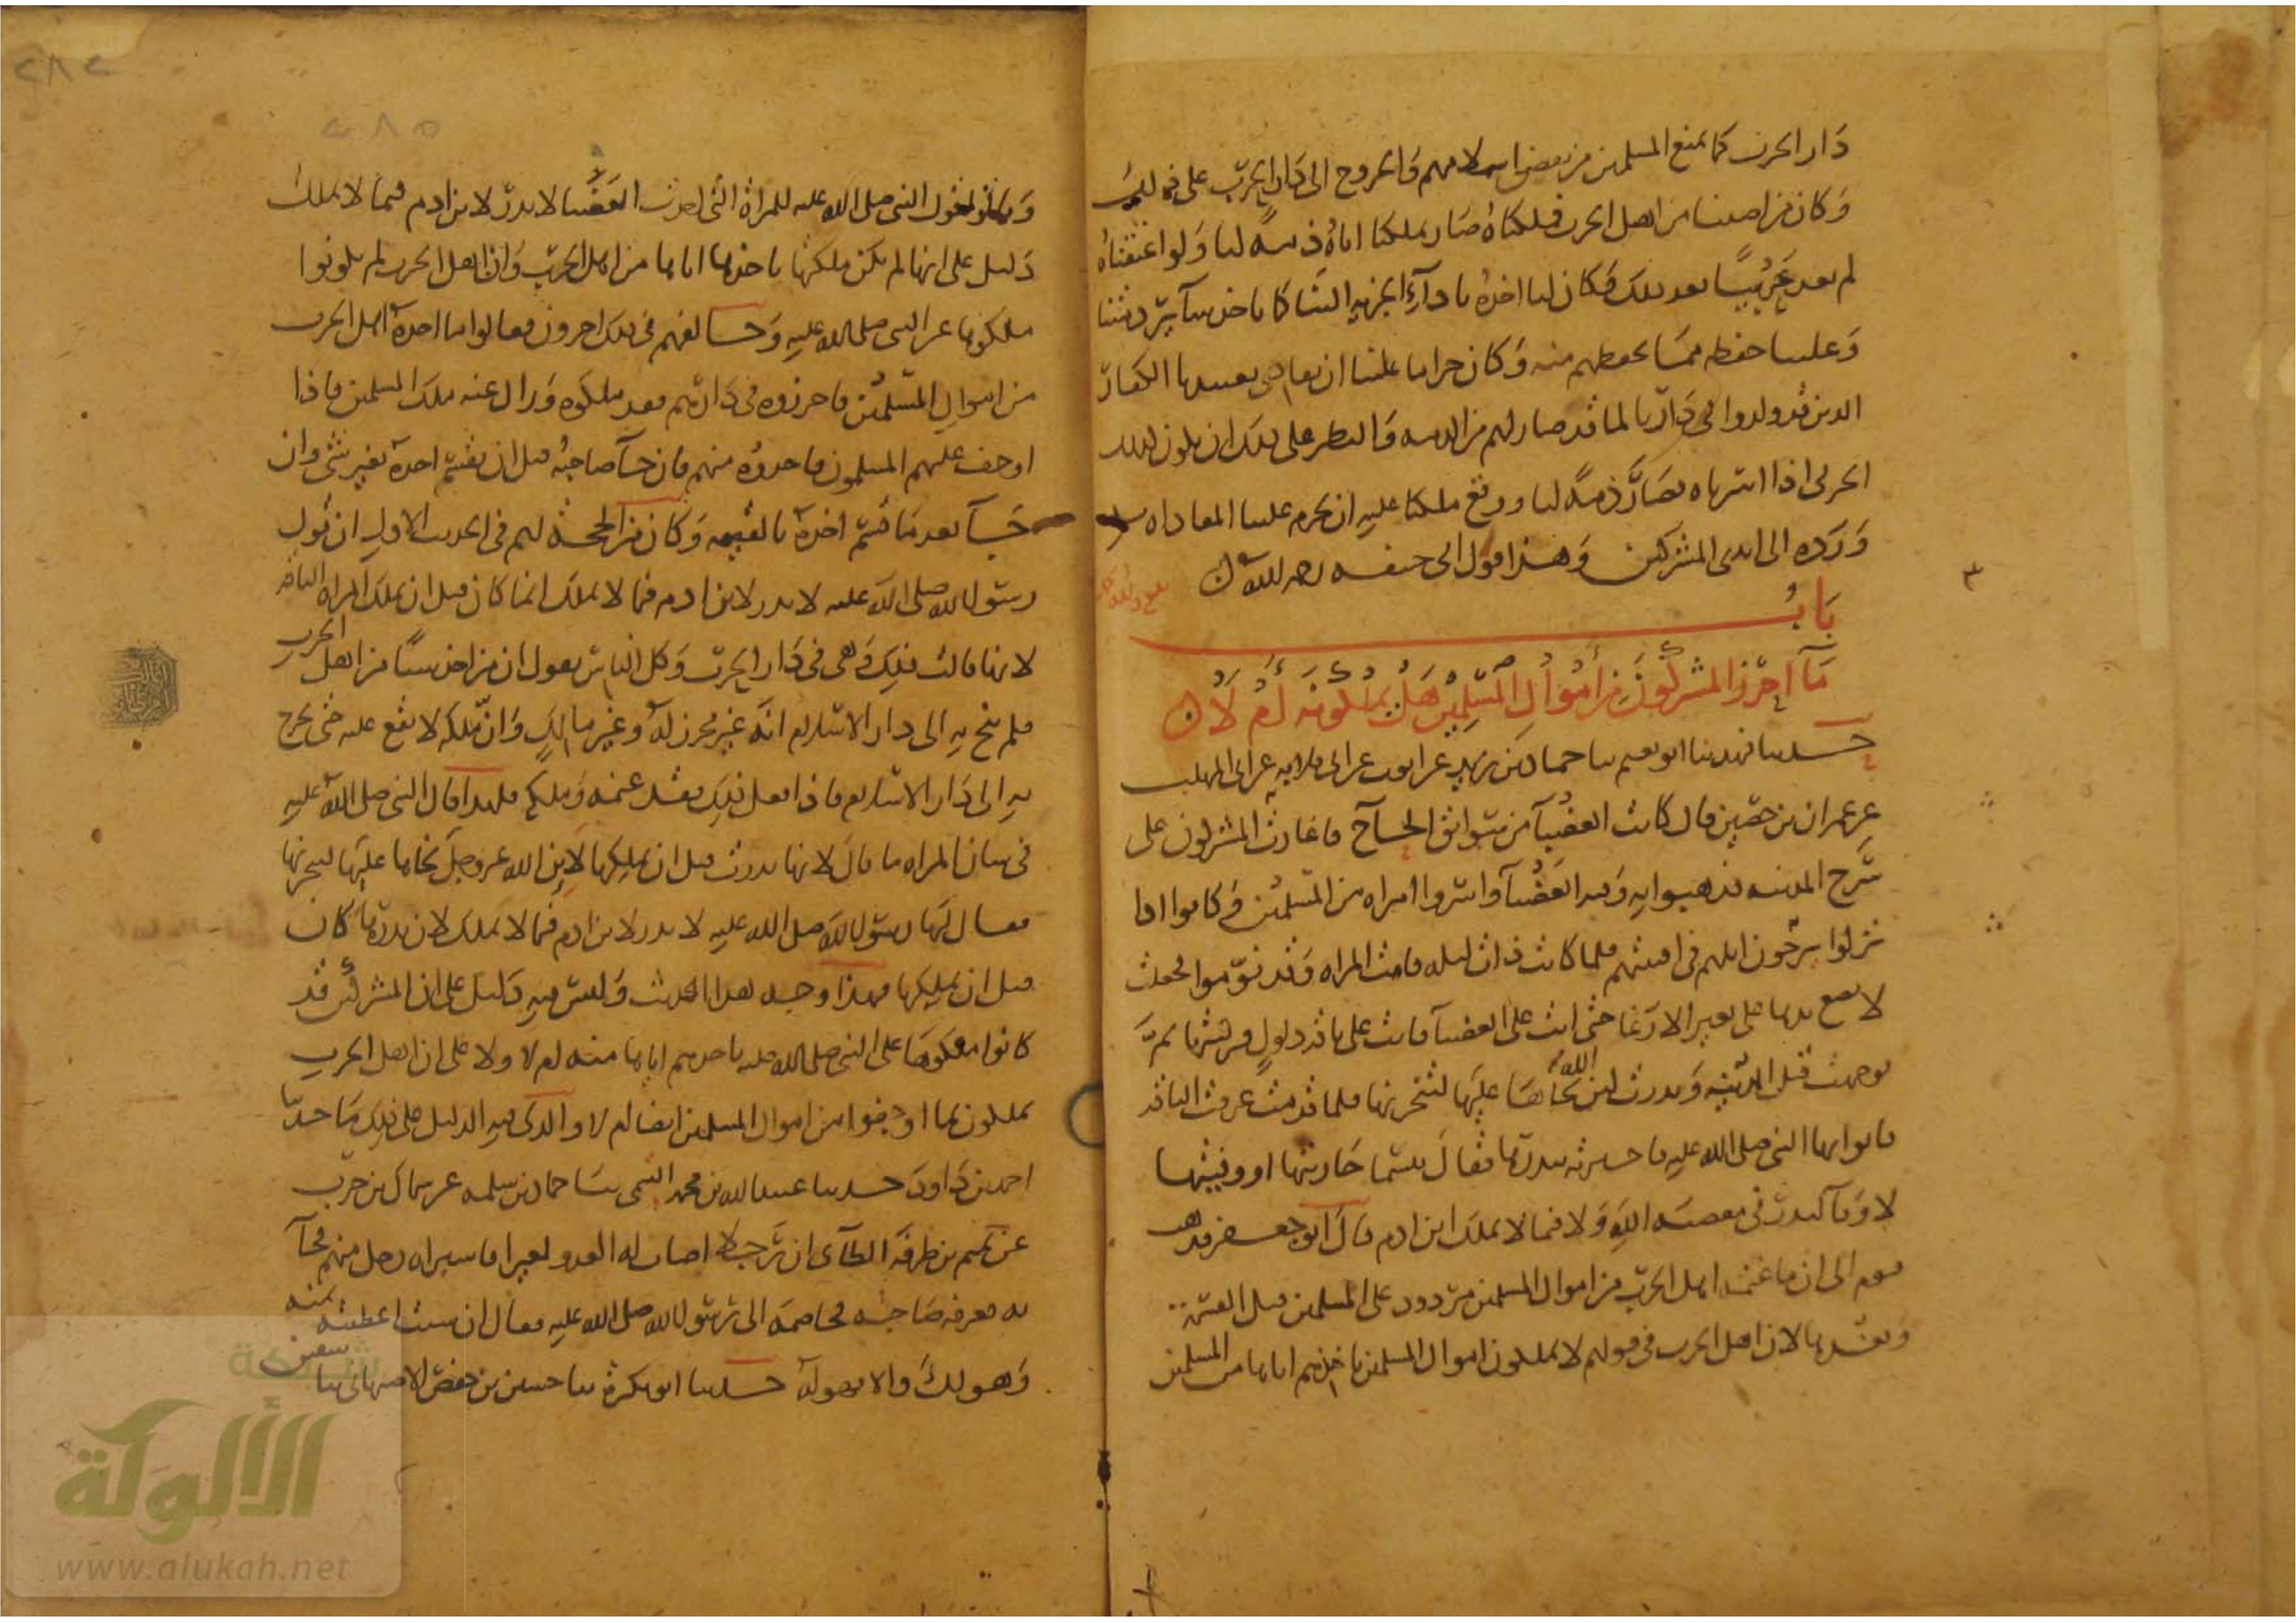 دار الحرب كما نمنع المسلمين من نقض اسلامهم والخروج الى دار الحرب على ذلك
وكان من اصبنا من اهل الحرب فملكناه صار بملكنا اياه ذمة لنا ولو اعتقناه
لم يعد حربيا بعد ذلك وكان لنا اخذه باداء الجزية الينا كما ناخذ سائر ذمتنا
وعلينا حفظه مما نحفظهم منه وكان حراما علينا ان نفادي بعبيدنا الكفار
الذين قد ولدوا في دارنا لما قد صار لهم من الذمة والنظر على ذلك ان يكون كذلك
الحربي اذا اسرناه فصار ذمة لنا ووقع ملكنا عليه ان يحرم علينا المفاداه به
ورده الى ايدي المشركين وهذا قول ابي حنيفه رحمه الله
باب
ما احرز المشركون من اموال المسلمين هل يملكونه ام لا
حدثنا فهد ثنا ابو نعيم ثنا حماد بن زيد عن ايوب عن ابي قلابه عن ابي المهلب
عن عمران بن حصين قال كانت العضباء من سوابق الحاج فاغارت المشركون على
سرح المدينه فذهبوا به وفيه العضباء واسروا امراه من المسلمين وكانوا اذا
نزلوا يرحون ابلهم في افنيتهم فلما كانت ذات ليله قامت المراه وقد نوموا فجعلت
لا تضع يدها على بعير الا رغا حتى اتت على العضباء فاتت على ناقة ذلول فركبتها ثم
توجهت قبل المدينه ونذرت لئن نجاها الله عليها لتنحرنها فلما قدمت عرفت الناقة
فاتوا بها النبي صلى الله عليه فاخبرته بنذرها فقال بئسما جازيتها او وفيتها
لا وفاء لنذر في معصية الله ولا فيما لا يملك ابن ادم قال ابو جعفر فذهب
قوم الى ان ما غنم اهل الحرب من اموال المسلمين مردود على المسلمين قبل القسمة
وبعدها لان اهل الحرب في قولهم لا يملكون اموال المسلمين باخذهم اياها من المسلمين
٢٨٢
٢٨٥
وقالوا قول النبي صلى الله عليه للمراة التي اخذت العضباء لا نذر لابن ادم فيما لا يملك
دليل على انها لم تكن ملكتها باخذها اياها من اهل الحرب وان اهل الحرب لم يكونوا
ملكوها على النبي صلى الله عليه وخالفهم في ذلك اخرون فقالوا ما اخذه اهل الحرب
من اموال المسلمين فاحرزوه في دارهم فقد ملكوه وزال عنه ملك المسلمين فاذا
اوجف عليهم المسلمون فاخذوه منهم فان جاء صاحبه قبل ان يقسم اخذه بغير شئ وان
جاء بعد ما قسم اخذه بالقيمه وكان من الحجة لهم في الحديث الاول ان قول
رسول الله صلى الله عليه لا نذر لابن ادم فيما لا يملك انما كان قبل ان تملك المراه الناقه
لانها قالت ذلك وهي في دار الحرب وكل الناس يقول ان من اخذ شيئا من اهل الحرب
فلم ينج به الى دار الاسلام انه غير محرز له وغير مالك وان ملكه لا يقع عليه حتى يخرج
به الى دار الاسلام فاذا فعل ذلك فقد غنمه وملكه فلهذا قال النبي صلى الله عليه
في شان المراه ما قال لانها نذرت قبل ان تملكها لان الله عز وجل نجاها عليها لينحرنها
فقال لها رسول الله صلى الله عليه لا نذر لابن ادم فيما لا يملك لان نذرها كان
قبل ان تملكها فهذا وجه هذا الحديث وليس فيه دليل على ان المشركين قد
كانوا ملكوها على النبي صلى الله عليه باخذهم اياها منه ام لا ولا على ان اهل الحرب
يملكون ما اوجفوا من اموال المسلمين ايضا ام لا والذي فيه الدليل على ذلك ما حدثنا
احمد بن داود حدثنا عبيد الله بن محمد التيمي ثنا حماد بن سلمه عن سماك بن حرب
عن تميم بن طرفة الطائي ان رجلا اصاب له العدو بعيرا فاشتراه رجل منهم فجاء
به فعرفه صاحبه فخاصمه الى رسول الله صلى الله عليه فقال ان شئت اعطيته ثمنه
وهو لك والا فهو له حدثنا ابو بكرة ثنا حسين بن حفص الاصبهاني ثنا سفين
شبكة
الألوكة
www.alukah.net